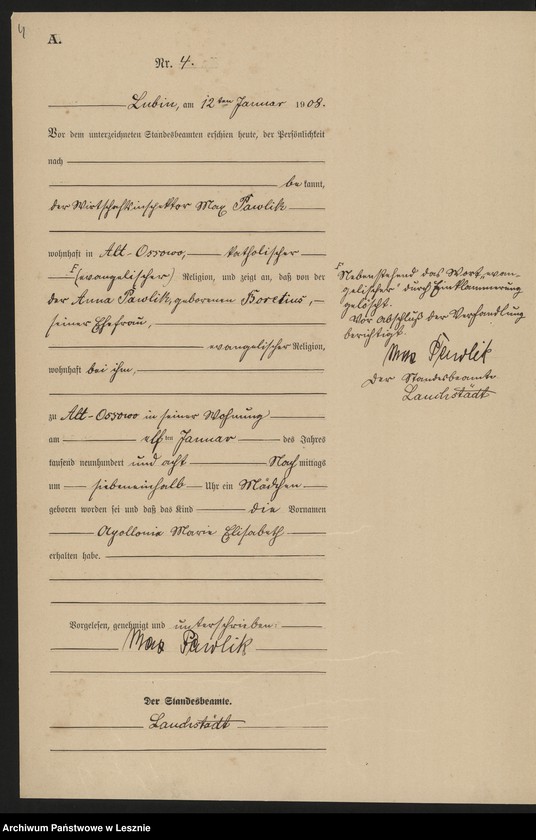 4
A.
Nr. 4.
Lubin, am 12 ten Januar 1908.
Vor dem unterzeichneten Standesbeamten erschien heute, der Persönlichkeit
nach
bekannt,
der Wirtschaftsinspektor Max Pawlik
wohnhaft in Alt-Ossowo, katholischer
(evangelischer) Religion, und zeigt an, daß von der
der Anna Pawlik, geborenen Boretius,
seiner Ehefrau,
evangelischer Religion,
wohnhaft bei ihm,
zu Alt-Ossowo in seiner Wohnung
am elf ten Januar des Jahres
tausend neunhundert und acht Nachmittags
um siebeneinhalb Uhr ein Mädchen
geboren worden sei und daß das Kind die Vornamen
Apollonia Marie Elisabeth
erhalten habe.
Vorgelesen, genehmigt und unterschrieben:
Max Pawlik
Der Standesbeamte.
Nebenstehend das Wort „evan-
gelischer" durch Einklammerung
gelöscht.
Vor Abschluß der Verhandlung
berichtigt.
Max Pawlik
Der Standesbeamte
Archiwum Państwowe w Lesznie